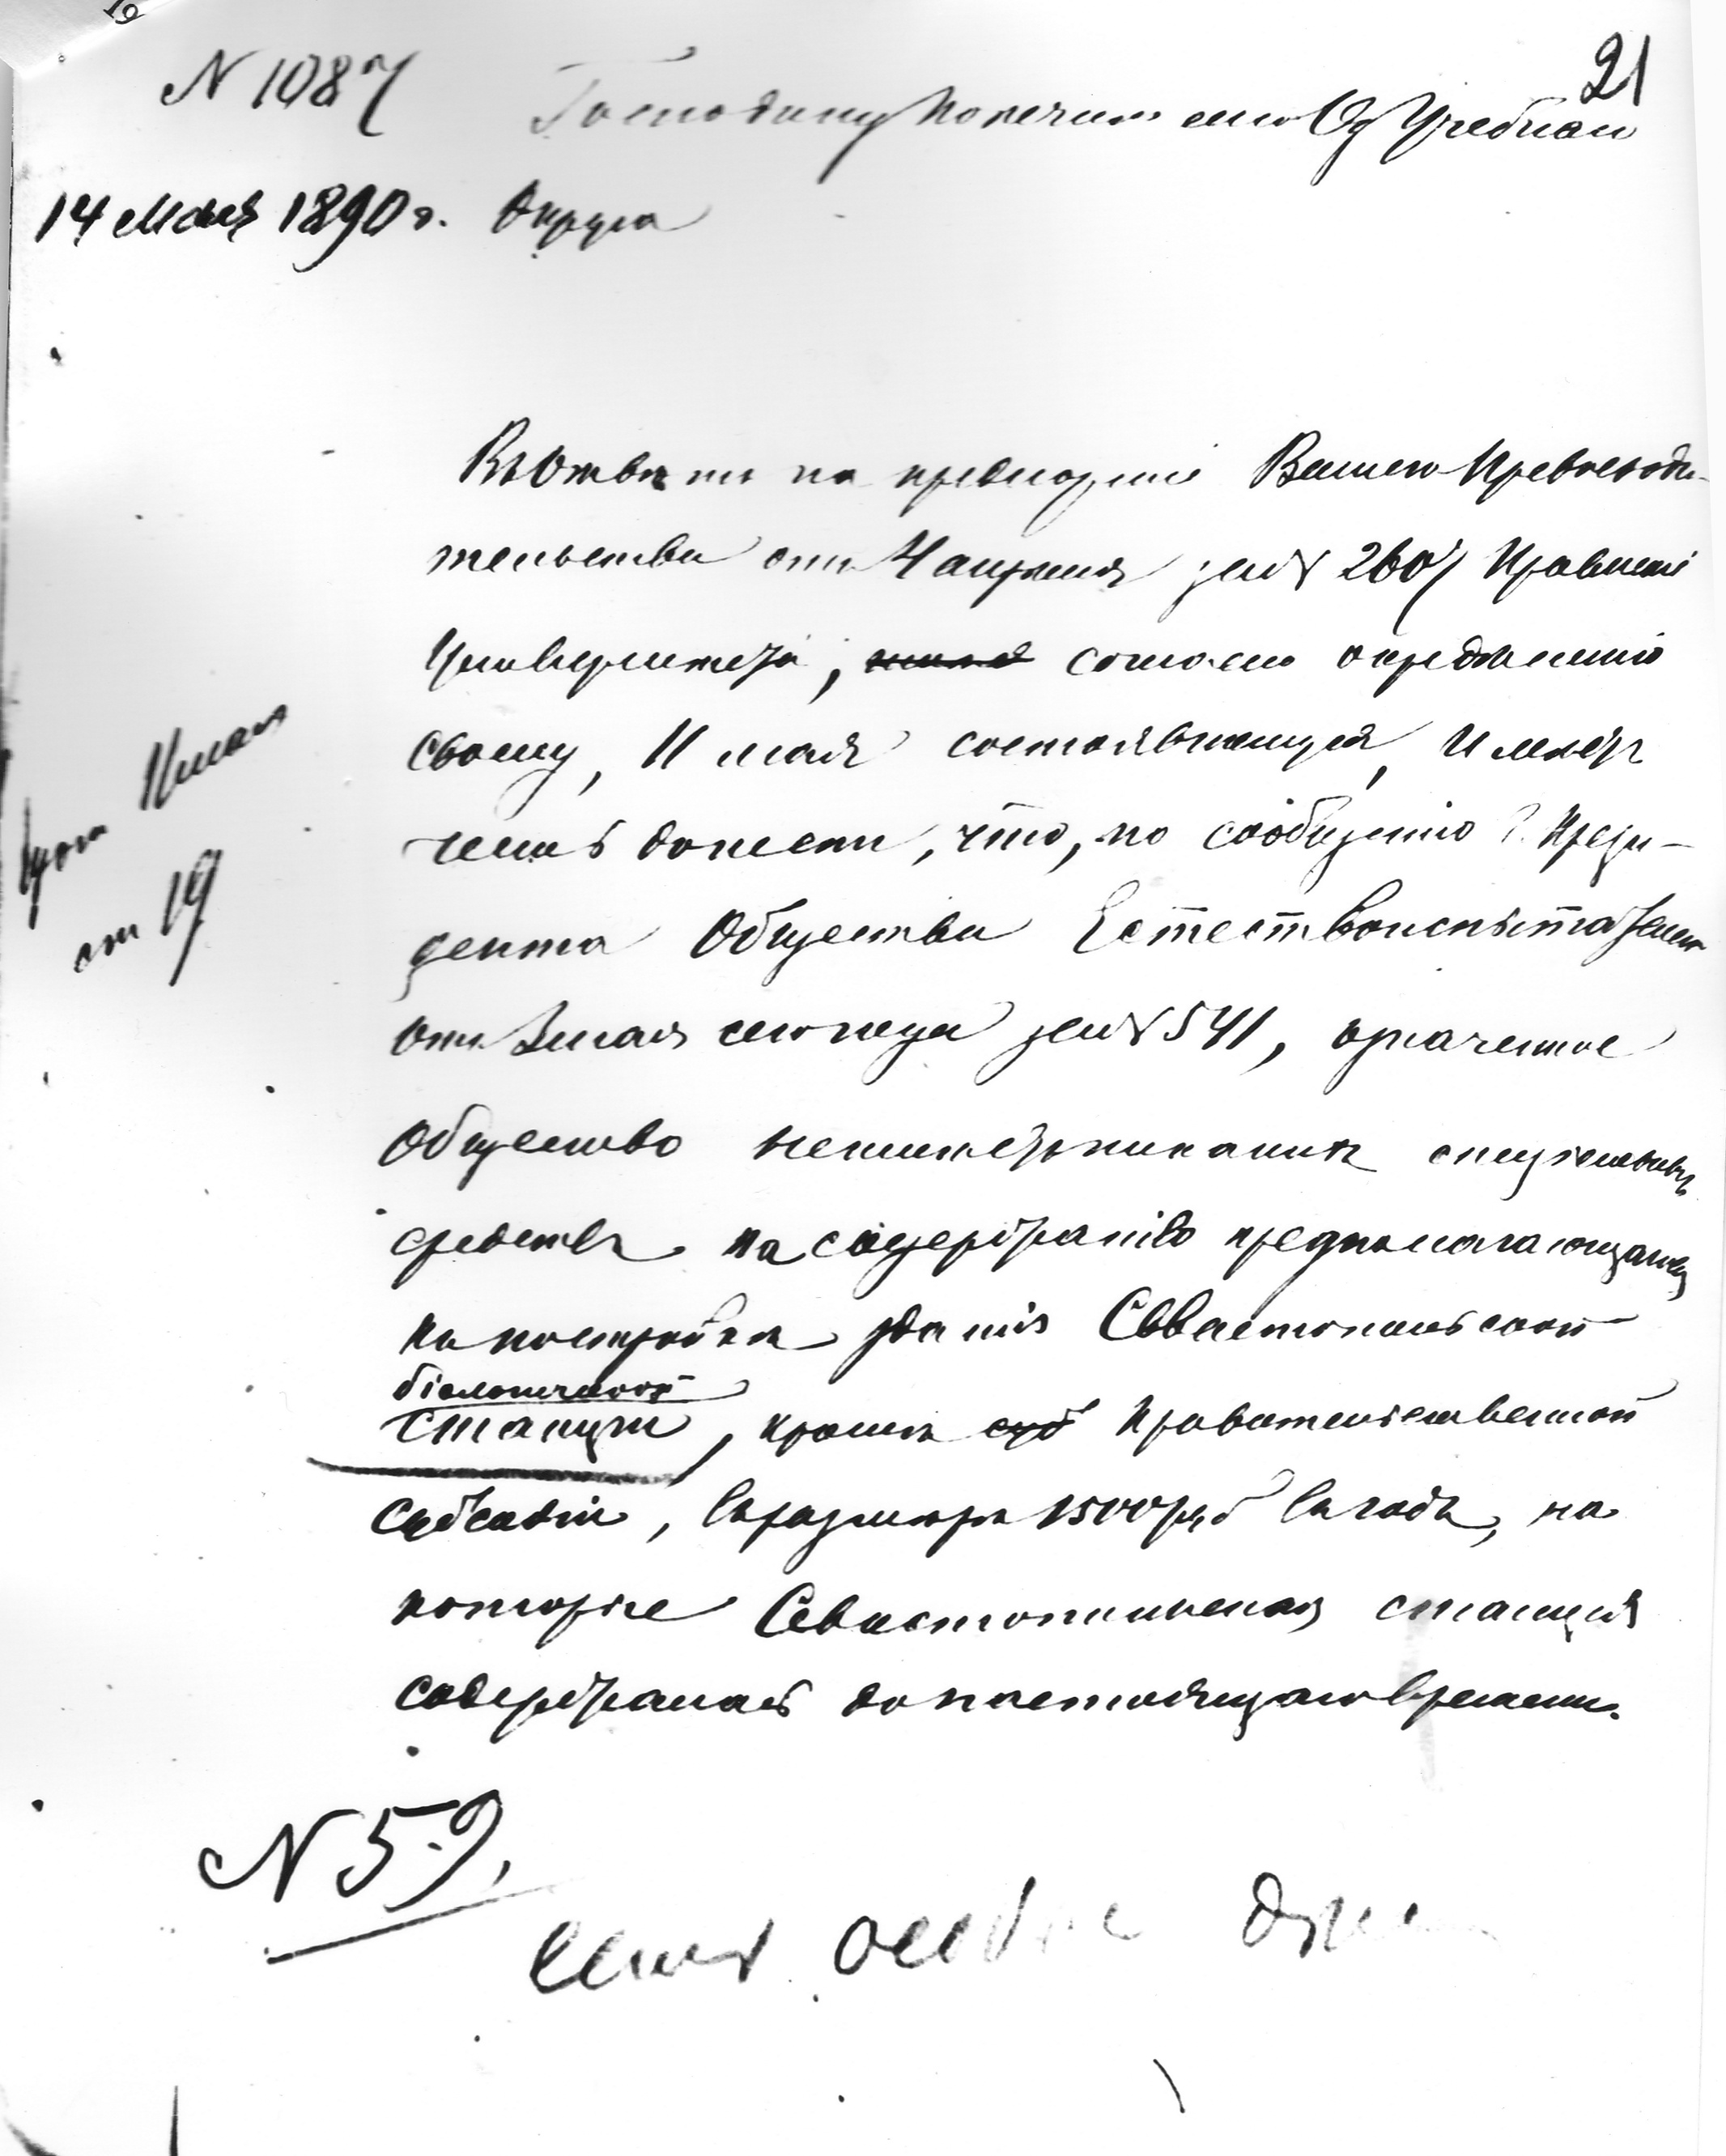 21
N 1087
Господину Попечителю Од Учебнаго
14 Мая 1890 г. Округа
Въ Отвѣтъ на предложеніе Вашего Превосходи-
тельства отъ 4 апрѣля за N 2607 Правленіе
Университета, согласно опредѣленію
своему, 11 мая состоявшемуся, имѣетъ
честь донести, что, по сообщенію г. Прези-
дента Общества Естествоиспытателей
отъ 3 мая сего года за N 541, означенное
Общество не имѣетъ никакихъ спеціальныхъ
средствъ на содержаніе предполагающагося
къ постройкѣ зданія Севастопольской
біологической
станціи, кромѣ Правительственной
субсидіи, въ размѣрѣ 1500 руб въ годъ, на
которые Севастопольская станція
содержалась до настоящаго времени.
мая
от 19
N 59.